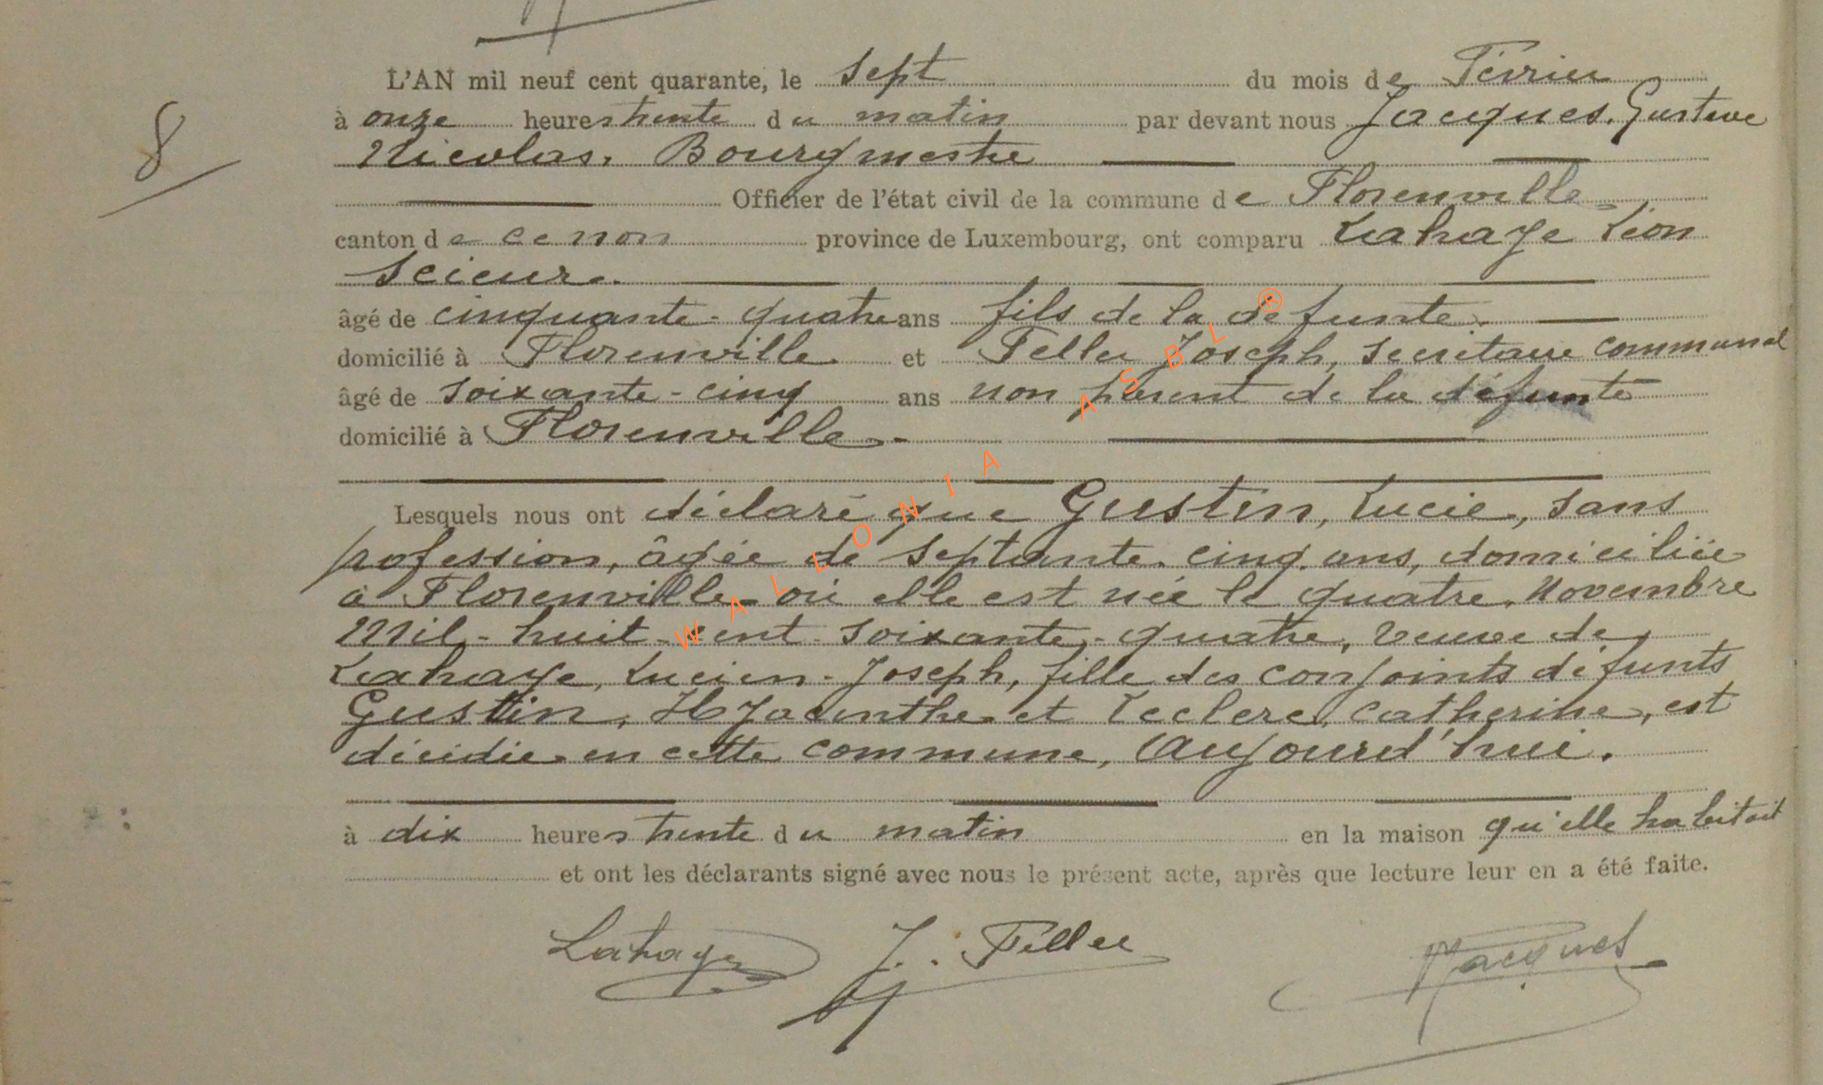 L'AN mil neuf cent quarante, le sept du mois de Février
8
à onze heures trente du matin par devant nous Jacques, Gustave
Nicolas, Bourgmestre
Officier de l'état civil de la commune de Florenville
canton de ce nom province de Luxembourg, ont comparu Lahaye Léon
Scieur.
âgé de cinquante-quatre ans fils de la défunte.
domicilié à Florenville et Feller Joseph, secrétaire communal
âgé de soixante-cinq ans non parent de la défunte
domicilié à Florenville.-
Lesquels nous ont déclaré que Gustin, Lucie, sans
profession, âgée de septante-cinq ans, domiciliée
à Florenville où elle est née le quatre Novembre
Mil-huit-cent-soixante-quatre, veuve de
Lahaye, Lucien-Joseph, fille des conjoints défunts
Gustin, Hyacinthe et Leclerc, Catherine, est
décédée en cette commune, Aujourd'hui.
à dix heures trente du matin en la maison qu'elle habitait
et ont les déclarants signé avec nous le présent acte, après que lecture leur en a été faite.
Lahaye J. Feller Jacques
WALLONIA ASBL ®